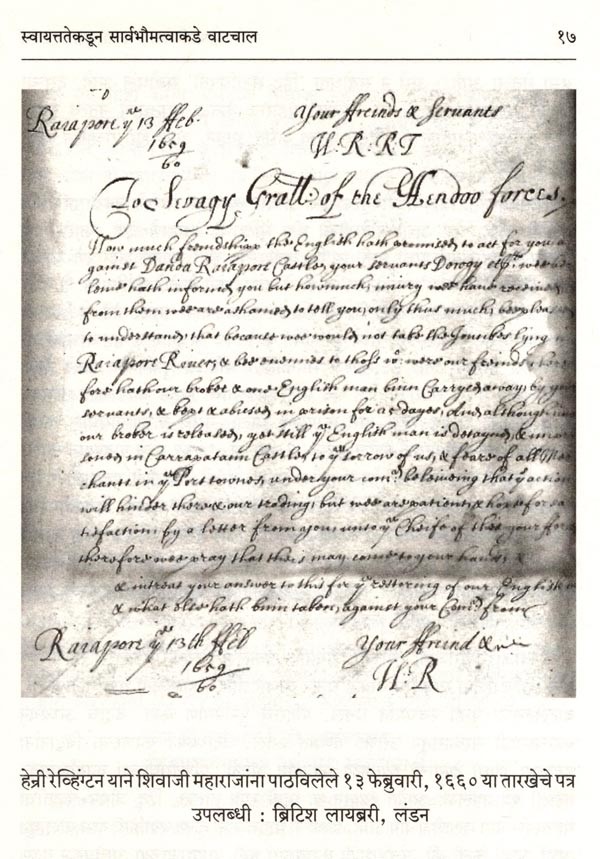 स्वायत्ततेकडून सार्वभौमत्वाकडे वाटचाल १७
Raiapore yᵉ 13 ffeb. Your ffreinds & servants
1659/60 H:R:RT
To Sevagy Grall: of the Hendoo forces.
How much freindshipp the English hath promised to act for you a
gainst Danda Raiapore Castle, your servants Dorogy
hath informed you but how much injury wee have received
from them wee are ashamed to tell you, only thus much, bee pleased
to understand, that because wee would not take the Jounckes lying in
Raiapore River, & bee enemies to those wᶜʰ were our freinds, there
fore hath our broker & one English man binn Carryed away, by your
servants, & kept & abused in prison for dayes, And although
our broker is released, yet still yᵉ English man is detayned, &
in Carrapatann Castle, to yᵉ sorrow of us, & feare of all Mer
chants in yᵉ Port townes, under your comᵈ: beleiveing that yᵉ action
will hinder there & our trading, but wee are patient, & hope for sa
tisfaction, by a letter from you, unto yᵉ Cheife of these your forces
therefore wee pray that theis may come to your hands, &
& intreat your answer to this for yᵉ restoring of our English
& what else hath binn taken, against your Comᵈ from
Raiapore yᵉ 13th ffeb Your ffreind &
1659/60 H:R
हेन्री रेव्हिंग्टन याने शिवाजी महाराजांना पाठविलेले १३ फेब्रुवारी, १६६० या तारखेचे पत्र
उपलब्धी : ब्रिटिश लायब्ररी, लंडन